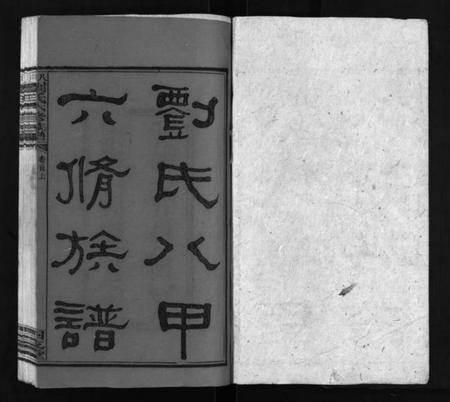 劉氏八甲
六脩族譜